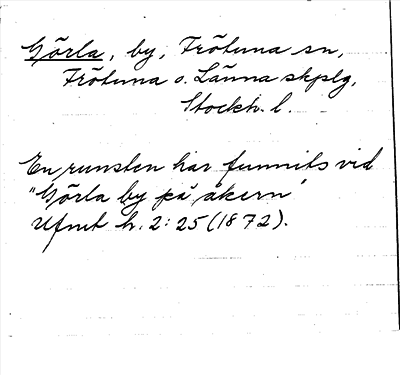 Görla, by, Frötuna sn,
Frötuna o. Länna skplg,
Stockh. l.
En runsten har funnits vid
"Görla by på åkern"
Ufmt h. 2: 25 (1872).